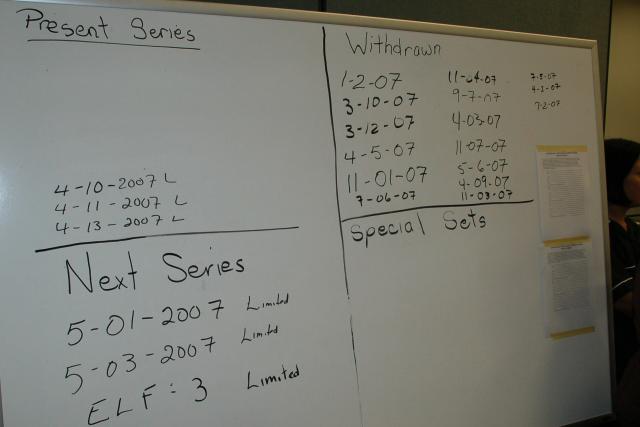 Present Series
4-10-2007 L
4-11-2007 L
4-13-2007 L
Next Series
5-01-2007 Limited
5-03-2007 Limited
ELF: 3 Limited
Withdrawn
1-2-07
3-10-07
3-12-07
4-5-07
11-01-07
7-06-07
11-04-07
9-7-07
4-03-07
11-07-07
5-6-07
4-09-07
11-03-07
7-2-07
Special Sets